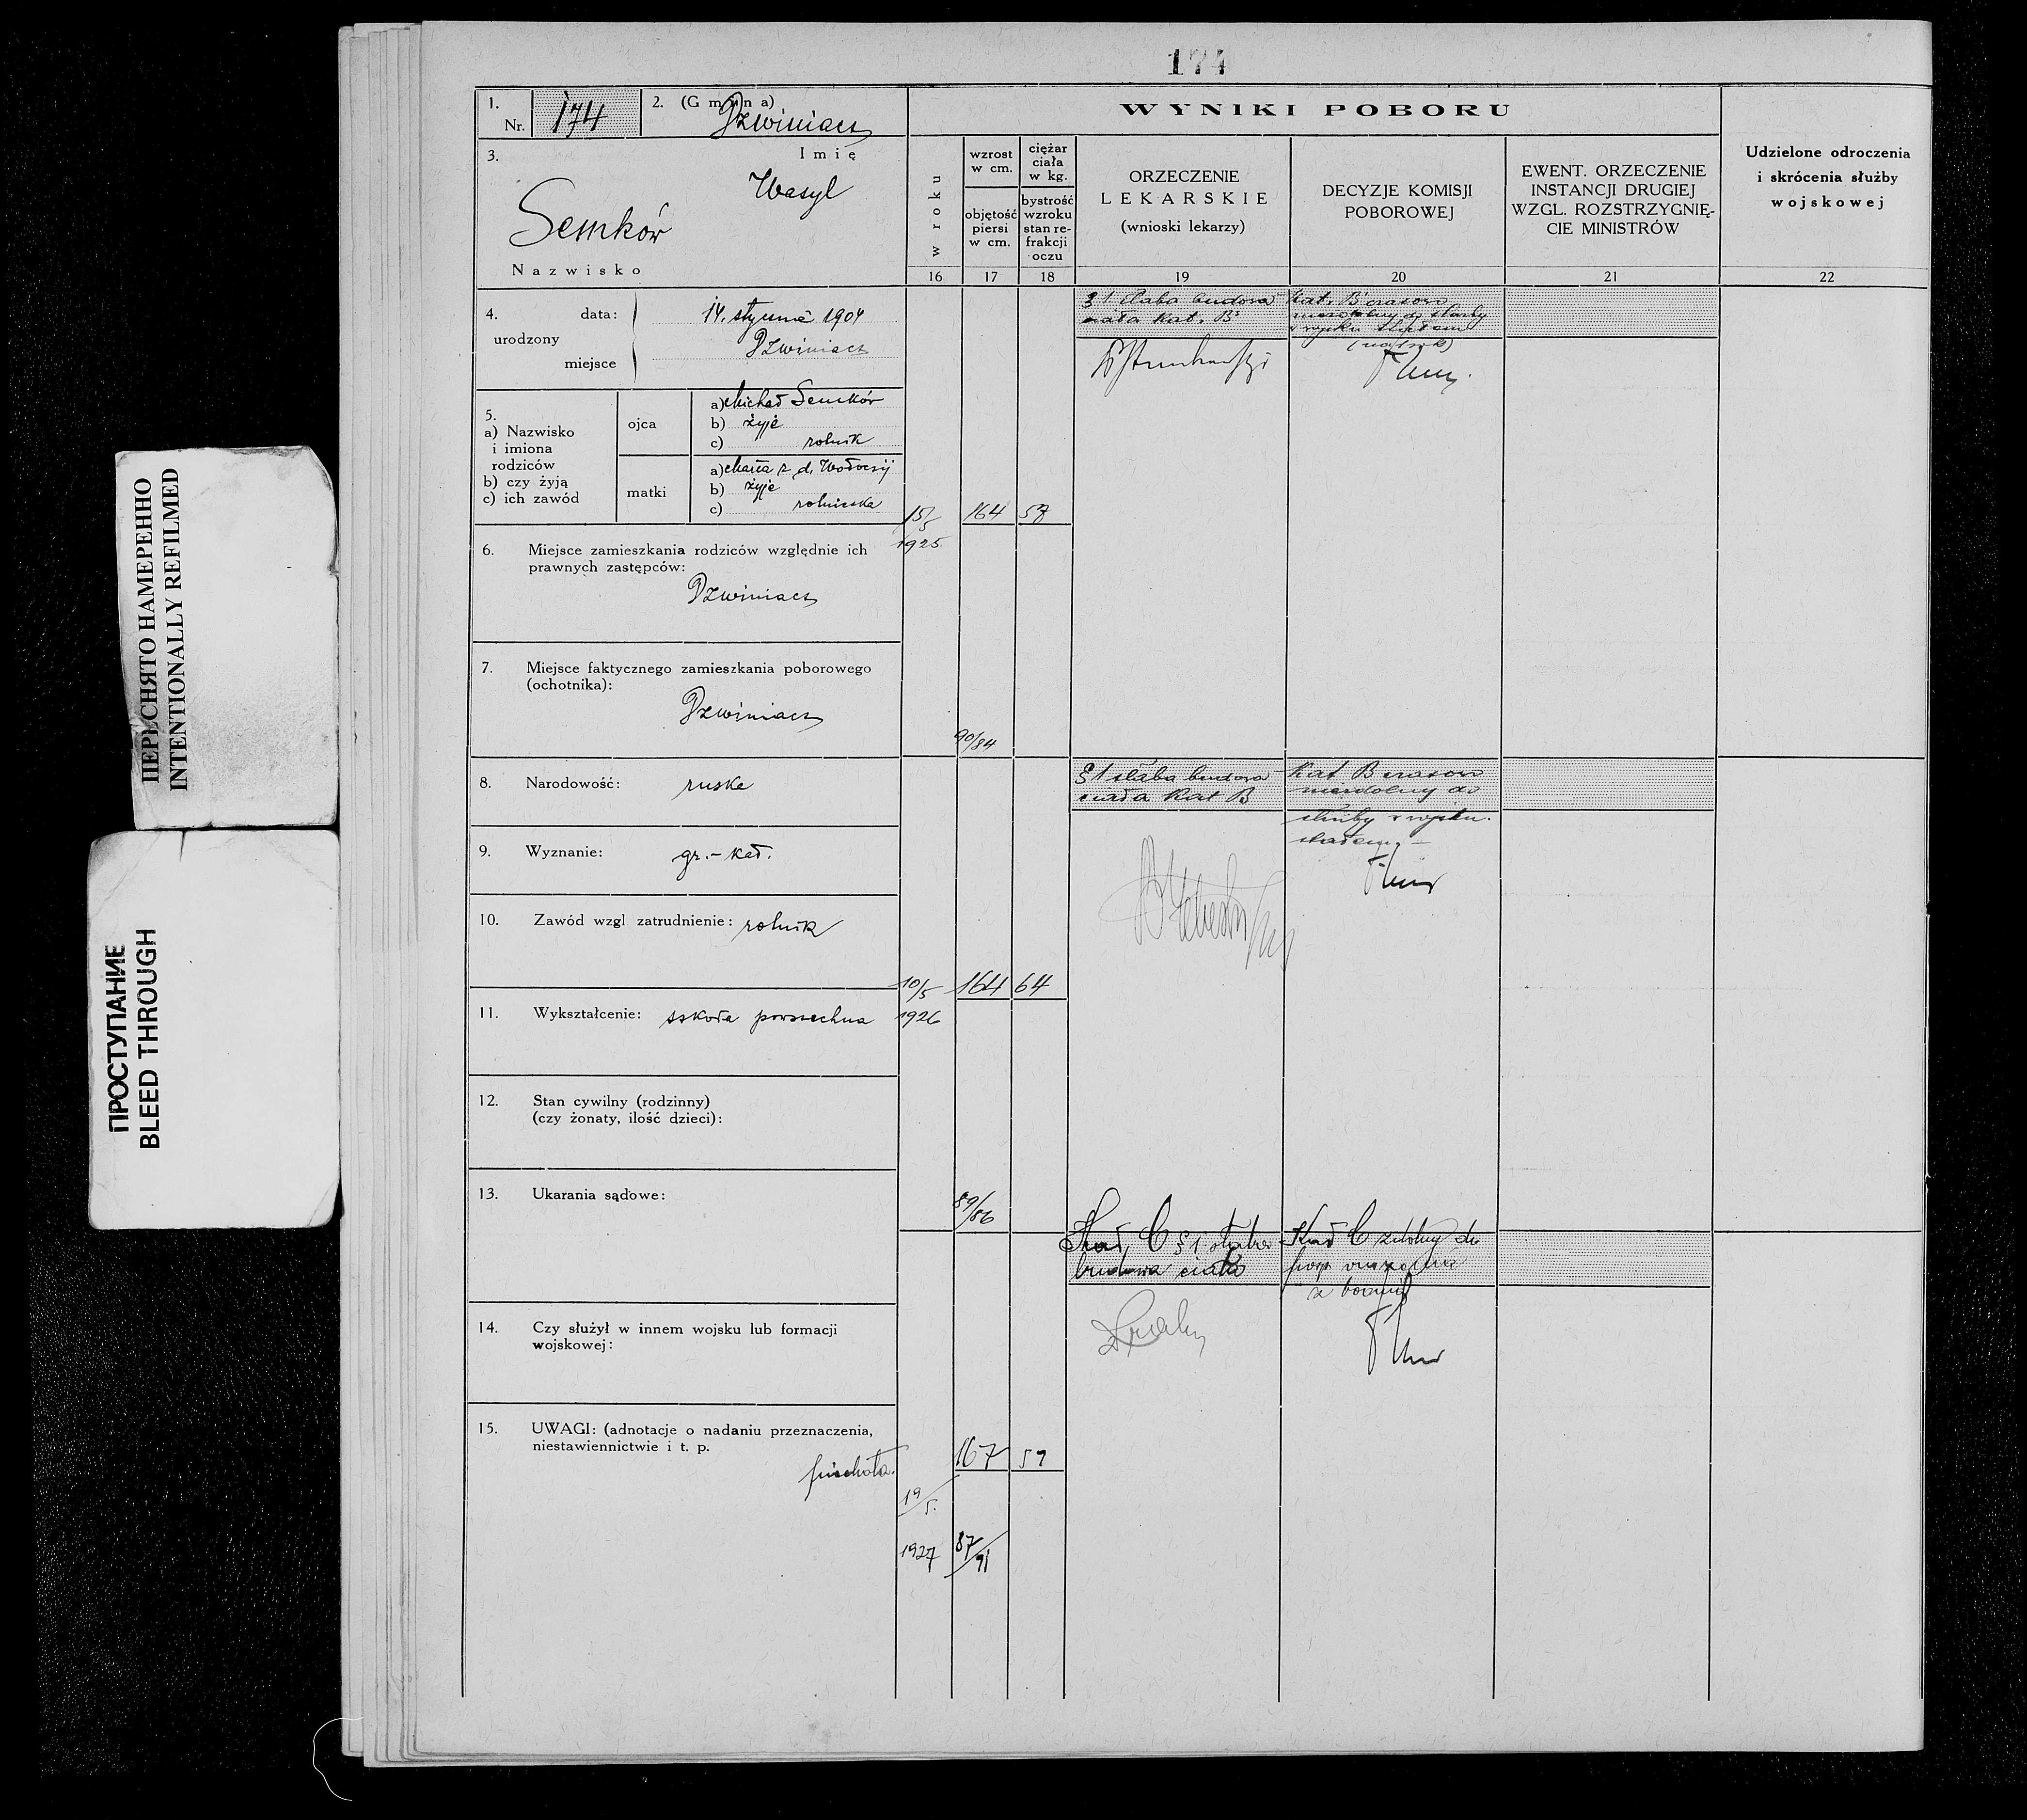 174
1.
Nr. 174
2. (Gmina)
Dzwiniacz
3.
Imię
Wasyl
Semków
Nazwisko
4.
urodzony
data: 14. stycznia 1904
miejsce Dzwiniacz
5.
a) Nazwisko
i imiona
rodziców
b) czy żyją
c) ich zawód
ojca
a) Michał Semków
b) żyje
c) rolnik
matki
a) Maria z d. Wołoczij
b) żyje
c) rolniczka
6. Miejsce zamieszkania rodziców względnie ich
prawnych zastępców:
Dzwiniacz
7. Miejsce faktycznego zamieszkania poborowego
(ochotnika):
Dzwiniacz
8. Narodowość: ruska
9. Wyznanie: gr.-kat.
10. Zawód wzgl zatrudnienie: rolnik
11. Wykształcenie: szkoła powszechna
12. Stan cywilny (rodzinny)
(czy żonaty, ilość dzieci):
13. Ukarania sądowe:
14. Czy służył w innem wojsku lub formacji
wojskowej:
15. UWAGI: (adnotacje o nadaniu przeznaczenia,
niestawiennictwie i t. p.
piechota.
WYNIKI POBORU
w roku
16
wzrost
w cm.
objętość
piersi
w cm.
17
ciężar
ciała
w kg.
bystrość
wzroku
stan re-
frakcji
oczu
18
ORZECZENIE
LEKARSKIE
(wnioski lekarzy)
19
DECYZJE KOMISJI
POBOROWEJ
20
EWENT. ORZECZENIE
INSTANCJI DRUGIEJ
WZGL. ROZSTRZYGNIĘ-
CIE MINISTRÓW
21
Udzielone odroczenia
i skrócenia służby
wojskowej
22
15/5
1925
164
57
90/84
§ 1 słaba budowa
ciała Kat. B
Kat. B czasowo
niezdolny do służby
w wojsku stałem
10/5
1926
164
64
89/86
§ 1 słaba budowa
ciała Kat B
Kat B czasowo
niezdolny do
służby w wojsku
stałem
19/5.
1927
167
87/91
Kat. C § 1 słaba
budowa ciała
Kat C zdolny do
z bronią
ПЕРЕСНЯТО НАМЕРЕННО
INTENTIONALLY REFILMED
ПРОСТУПАНИЕ
BLEED THROUGH